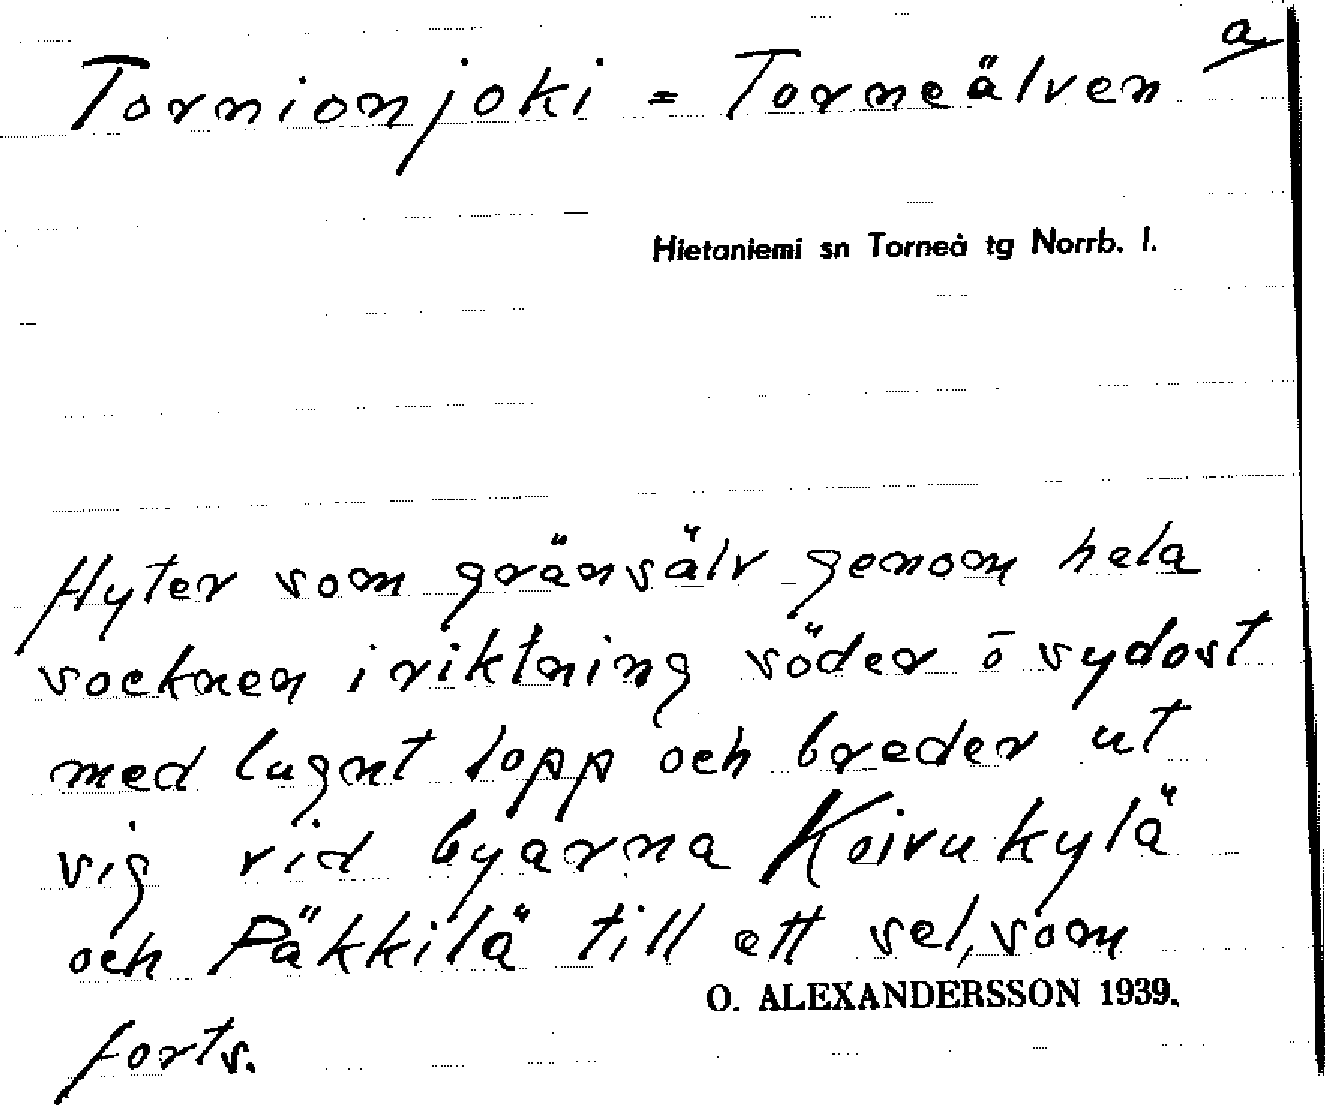 a
Tornionjoki = Torneälven
Hietaniemi sn Torneå tg Norrb. l.
Flyter som gränsälv genom hela
socknen i riktning söder o sydost
med lugnt lopp och breder ut
sig vid byarna Koivukylä
och Päkkilä till ett sel, som
O. ALEXANDERSSON 1939.
forts.